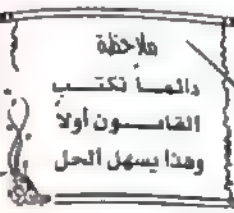 ملاحظة
دائمـــاً تكتـــب
القانـــون أولا
وهذا يسهل الحل